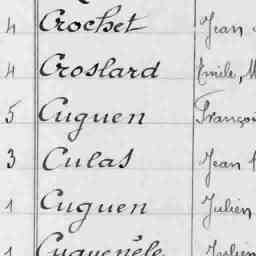 4 Crochet Jean
4 Croslard Emile, M
5 Cuguen Françoi
3 Culas Jean
1 Cuguen Julien
1 Cuguenèle Julien